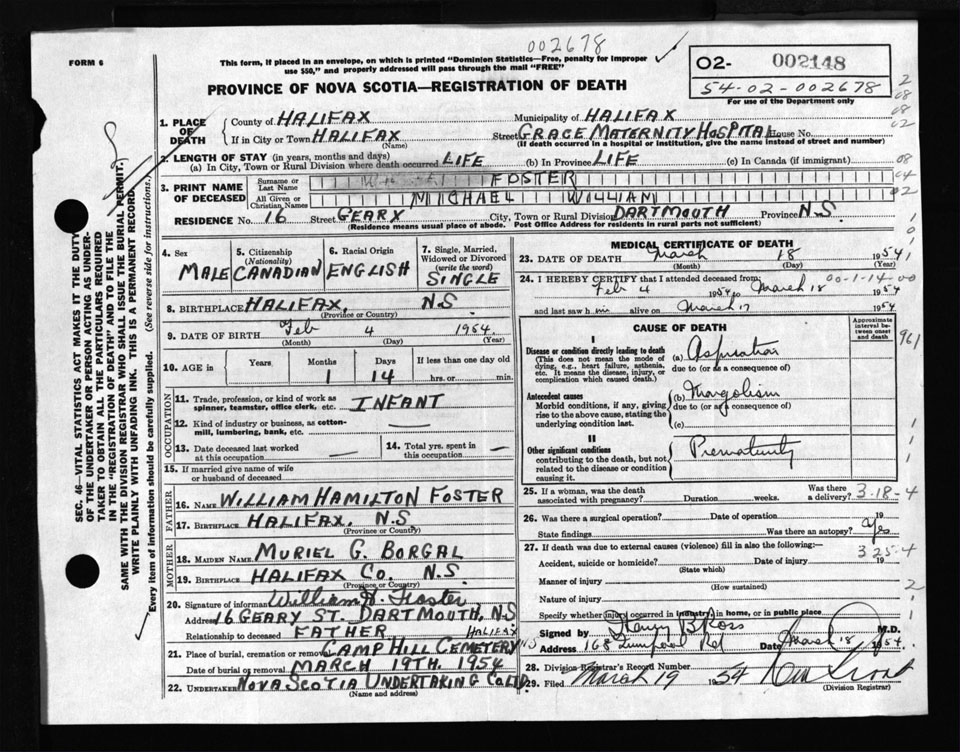 002678
FORM 6
This form, if placed in an envelope, on which is printed "Dominion Statistics—Free, penalty for improper
use $50," and properly addressed will pass through the mail "FREE"
02- 002148
54-02-002678
For use of the Department only
PROVINCE OF NOVA SCOTIA—REGISTRATION OF DEATH
1. PLACE OF DEATH
County of HALIFAX Municipality of HALIFAX
If in City or Town HALIFAX Street GRACE MATERNITY HOSPITAL House No.
(Name) (If death occurred in a hospital or institution, give the name instead of street and number)
2. LENGTH OF STAY (in years, months and days)
(a) In City, Town or Rural Division where death occurred LIFE (b) In Province LIFE (c) In Canada (if immigrant)
3. PRINT NAME OF DECEASED
Surname or Last Name FOSTER
All Given or Christian Names MICHAEL WILLIAM
RESIDENCE No. 16 Street GEARY City, Town or Rural Division DARTMOUTH Province N.S.
(Residence means usual place of abode. Post Office Address for residents in rural parts not sufficient)
4. Sex MALE
5. Citizenship (Nationality) CANADIAN
6. Racial Origin ENGLISH
7. Single, Married, Widowed or Divorced (write the word) SINGLE
8. BIRTHPLACE HALIFAX, N.S.
(Province or Country)
9. DATE OF BIRTH Feb 4 1954
(Month) (Day) (Year)
10. AGE in Years Months Days If less than one day old
1 14 hrs. or min.
OCCUPATION
11. Trade, profession, or kind of work as spinner, teamster, office clerk, etc. INFANT
12. Kind of industry or business, as cotton-mill, lumbering, bank, etc. —
13. Date deceased last worked at this occupation —
14. Total yrs. spent in this occupation —
15. If married give name of wife or husband of deceased
FATHER
16. NAME WILLIAM HAMILTON FOSTER
17. BIRTHPLACE HALIFAX, N.S.
(Province or Country)
MOTHER
18. MAIDEN NAME MURIEL G. BORGAL
19. BIRTHPLACE HALIFAX CO. N.S.
(Province or Country)
20. Signature of informant William H. Foster
Address 16 GEARY ST. DARTMOUTH, N.S
Relationship to deceased FATHER
21. Place of burial, cremation or removal CAMP HILL CEMETERY HALIFAX
Date of burial or removal MARCH 19TH. 1954
22. UNDERTAKER NOVA SCOTIA UNDERTAKING CO LTD.
(Name and address)
MEDICAL CERTIFICATE OF DEATH
23. DATE OF DEATH March 18 1954
(Month) (Day) (Year)
24. I HEREBY CERTIFY that I attended deceased from: 00-1-14-00
Feb 4 1954 to March 18 1954
and last saw him alive on March 17 1954
CAUSE OF DEATH
Approximate interval between onset and death
I
Disease or condition directly leading to death
(This does not mean the mode of dying, e.g., heart failure, asthenia, etc. It means the disease, injury, or complication which caused death.)
(a) Aspiration
due to (or as a consequence of)
961
Antecedent causes
Morbid conditions, if any, giving rise to the above cause, stating the underlying condition last.
(b) Mongolism
due to (or as a consequence of)
(c)
II
Other significant conditions
contributing to the death, but not related to the disease or condition causing it.
Prematurity
25. If a woman, was the death associated with pregnancy? Duration weeks. Was there a delivery? 3-18-4
26. Was there a surgical operation? Date of operation 19
State findings Was there an autopsy? Yes
27. If death was due to external causes (violence) fill in also the following:— 325-4
Accident, suicide or homicide? Date of injury 19
(State which)
Manner of injury
(How sustained)
Nature of injury
Specify whether injury occurred in industry, in home, or in public place
Signed by B Ross M.D.
Address 168 Rd Date March 18 1954
28. Division Registrar's Record Number
29. Filed March 19 1954
(Division Registrar)
SEC. 46—VITAL STATISTICS ACT MAKES IT THE DUTY
OF THE UNDERTAKER OR PERSON ACTING AS UNDER-
TAKER TO OBTAIN ALL THE PARTICULARS REQUIRED
IN THE "REGISTRATION OF DEATH" AND TO FILE THE
SAME WITH THE DIVISION REGISTRAR WHO SHALL ISSUE THE BURIAL PERMIT.
WRITE PLAINLY WITH UNFADING INK. THIS IS A PERMANENT RECORD.
Every item of information should be carefully supplied. (See reverse side for instructions.)